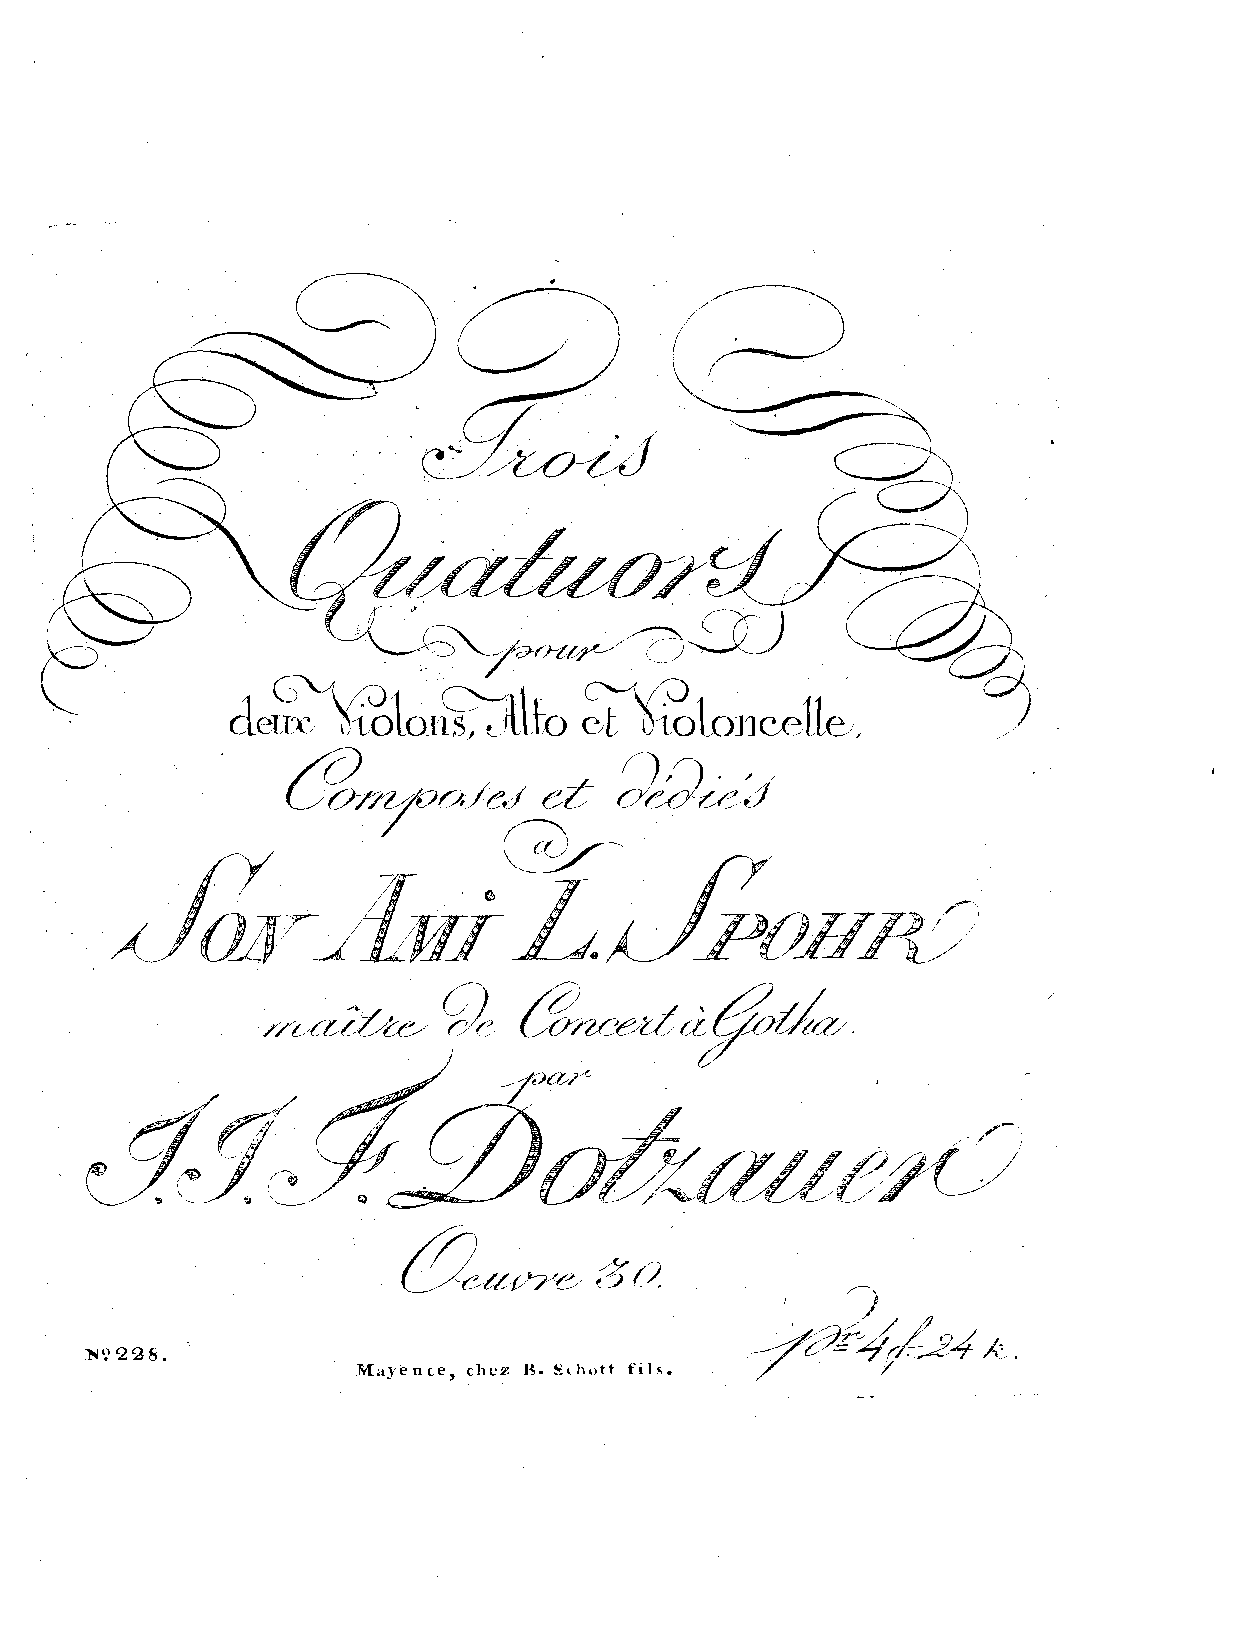 Trois
Quatuors
pour
deux Violons, Alto et Violoncelle,
Composés et dédiés
a
Son Ami L. Spohr
maître de Concert à Gotha.
par
J. J. F. Dotzauer
Oeuvre 30.
Nº 228.
Mayence, chez B. Schott fils.
pr 4 f 24 k.